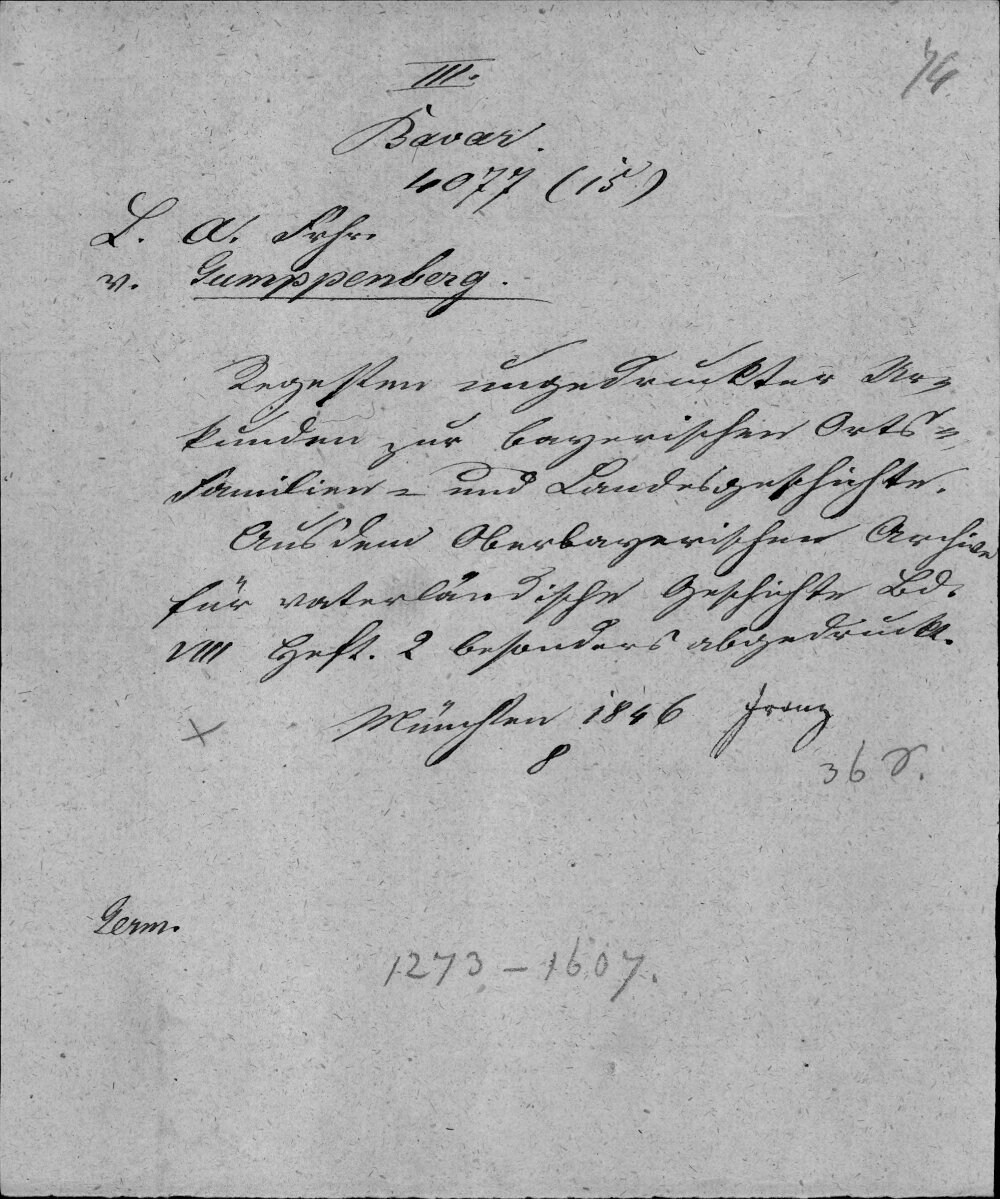 76
III.
Bavar.
4077 (15)
L. A. Frhr.
v. Gumppenberg.
Regesten ungedruckter Ur=
kunden zur bayerischen Orts=
Familien= und Landesgeschichte.
Aus dem Oberbayerischen Archive
für vaterländische Geschichte Bd.
VIII Heft. 2 besonders abgedruckt.
München 1846 Franz
8
Germ.
1273 – 1607.